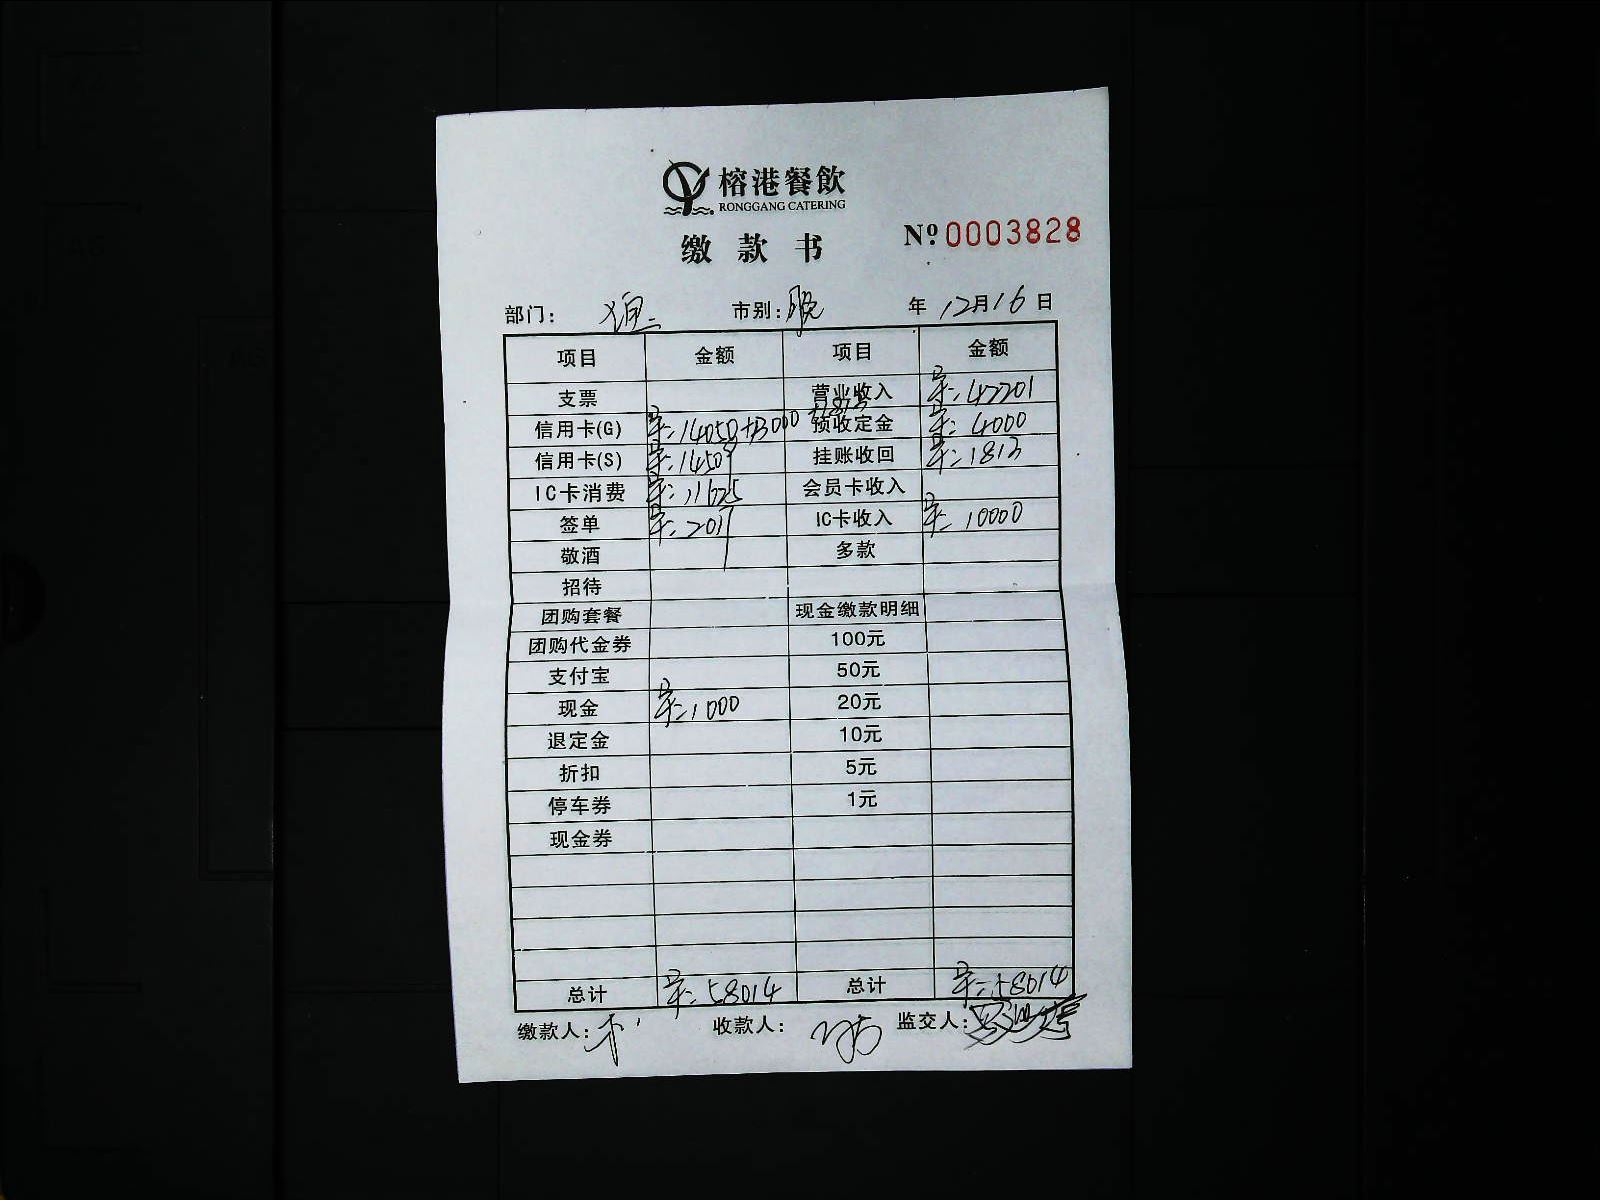 榕港餐飲
RONGGANG CATERING
缴款书
Nº 0003828
部门: 市别: 晚 年 12月16日
项目 金额 项目 金额
支票 营业收入 42201
信用卡(G) +13000 预收定金 4000
信用卡(S) 挂账收回 1813
IC卡消费 会员卡收入
签单 IC卡收入 10000
敬酒 多款
招待
团购套餐 现金缴款明细
团购代金券 100元
支付宝 50元
现金 1000 20元
退定金 10元
折扣 5元
停车券 1元
现金券
总计 58014 总计 58014
缴款人: 收款人: 监交人: